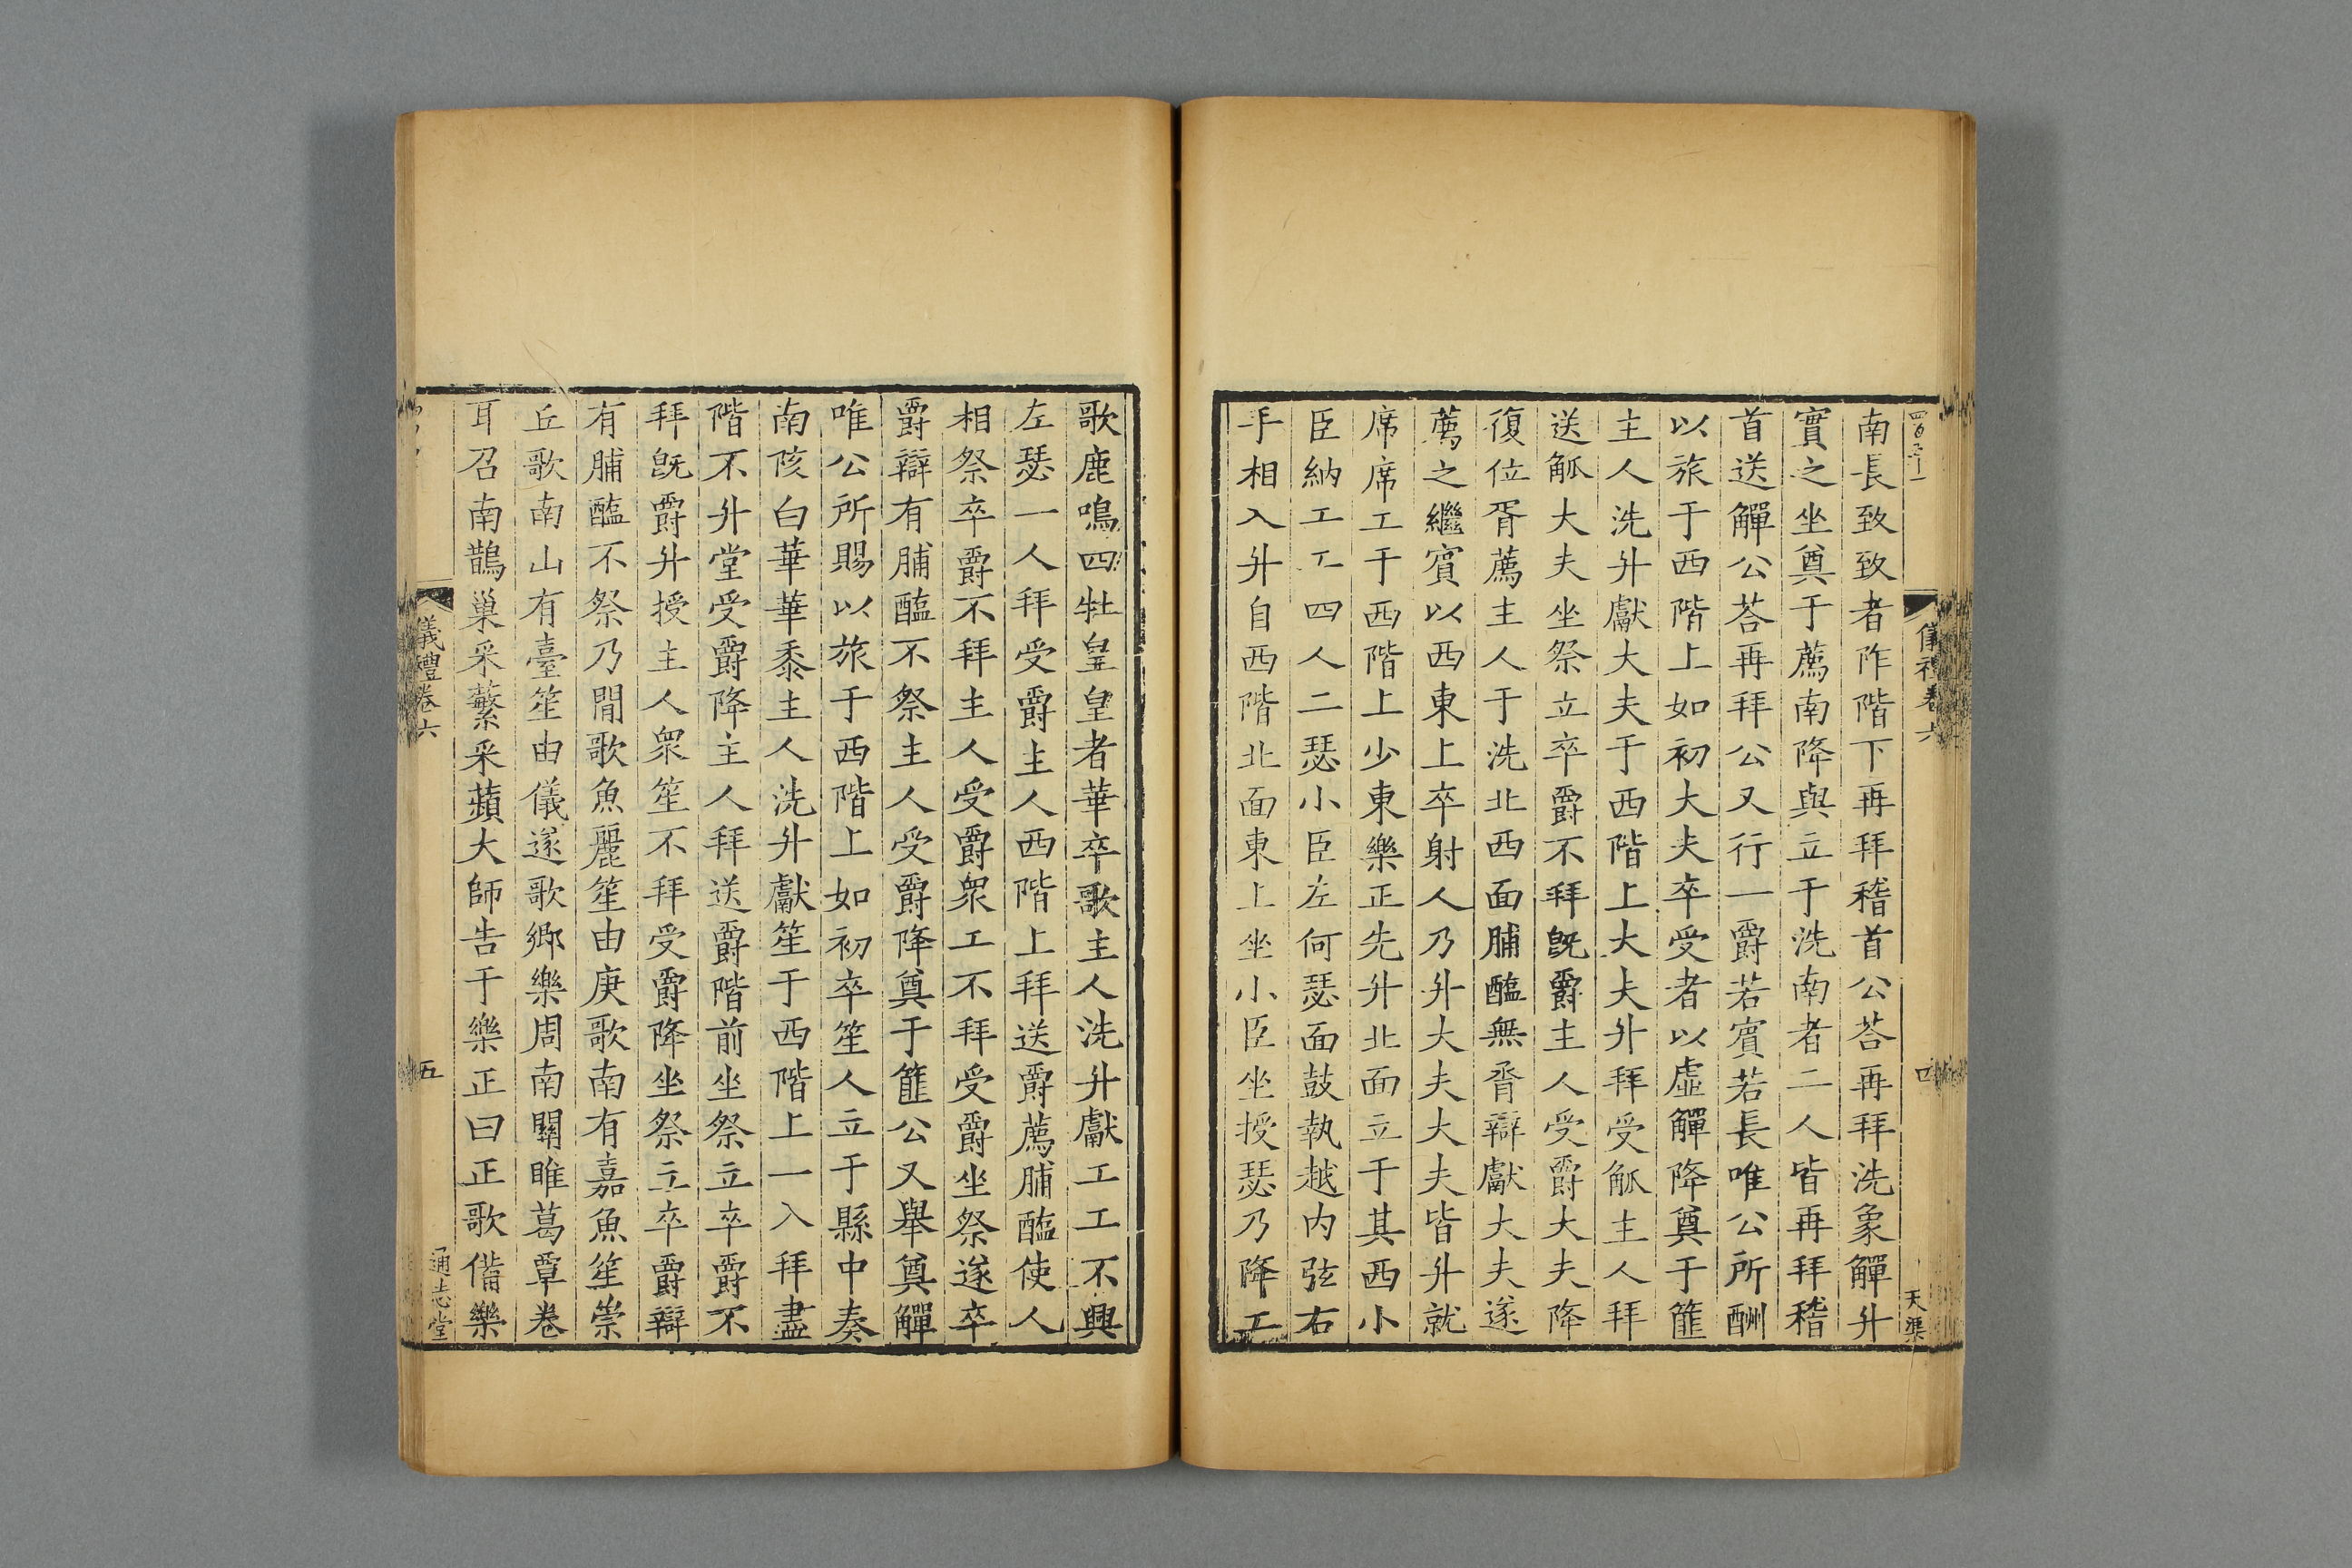 儀禮卷六
四
天渠
南長致致者阼階下再拜稽首公荅再拜洗象觶升
實之坐奠于薦南降與立于洗南者二人皆再拜稽
首送觶公荅再拜公又行一爵若賓若長唯公所酬
以旅于西階上如初大夫卒受者以虛觶降奠于篚
主人洗升獻大夫于西階上大夫升拜受觚主人拜
送觚大夫坐祭立卒爵不拜旣爵主人受爵大夫降
復位胥薦主人于洗北西面脯醢無脀辯獻大夫遂
薦之繼賓以西東上卒射人乃升大夫大夫皆升就
席席工于西階上少東樂正先升北面立于其西小
臣納工工四人二瑟小臣左何瑟面鼓執越内弦右
手相入升自西階北面東上坐小臣坐授瑟乃降工
歌鹿鳴四牡皇皇者華卒歌主人洗升獻工工不興
左瑟一人拜受爵主人西階上拜送爵薦脯醢使人
相祭卒爵不拜主人受爵衆工不拜受爵坐祭遂卒
爵辯有脯醢不祭主人受爵降奠于篚公又舉奠觶
唯公所賜以旅于西階上如初卒笙人立于縣中奏
南陔白華華黍主人洗升獻笙于西階上一入拜盡
階不升堂受爵降主人拜送爵階前坐祭立卒爵不
拜旣爵升授主人衆笙不拜受爵降坐祭立卒爵辯
有脯醢不祭乃閒歌魚麗笙由庚歌南有嘉魚笙崇
丘歌南山有臺笙由儀遂歌鄉樂周南關雎葛覃卷
耳召南鵲巢采蘩采蘋大師告于樂正曰正歌備樂
儀禮卷六
五
通志堂